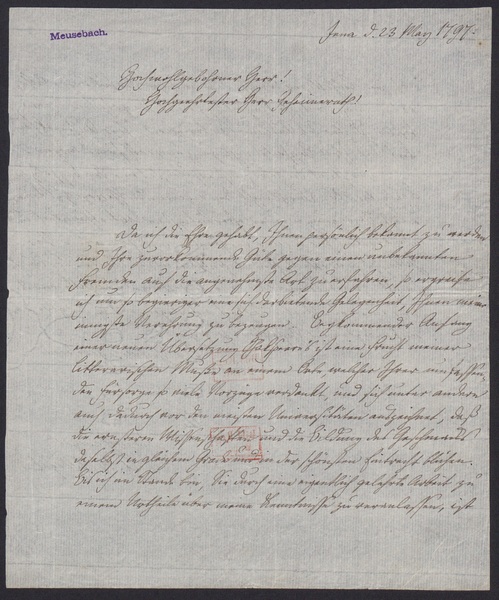 Meusebach.
Jena d. 23 März 1797.
Hochwohlgebohrner Herr!
Hochgeehrtester Herr Geheimerath!
Da ich die Ehre gehabt, Ihnen persönlich bekannt zu werden
und Ihre zuvorkommende Güte gegen einen unbekannten
Fremden auf die angenehmste Art zu erfahren, so ergreife
ich um so begieriger eine sich darbietende Gelegenheit, Ihnen meine
innigste Verehrung zu bezeugen. Beykommender Anfang
einer neuen Übersetzung Shakspeare's ist eine Frucht meiner
litterarischen Muße an einem Orte welcher Ihrer umfassen-
den Fürsorge so viele Vorzüge verdankt, und sich unter andern
auch dadurch vor den meisten Universitäten auszeichnet, daß
die ernsteren Wissenschaften und die Bildung des Geschmacks
daselbst in gleichem Grade und in der schönsten Eintracht blühen.
Bis ich im Stande bin, Sie durch eine eigentlich gelehrte Arbeit zu
einem Urtheile über meine Kenntnisse zu veranlassen, ist